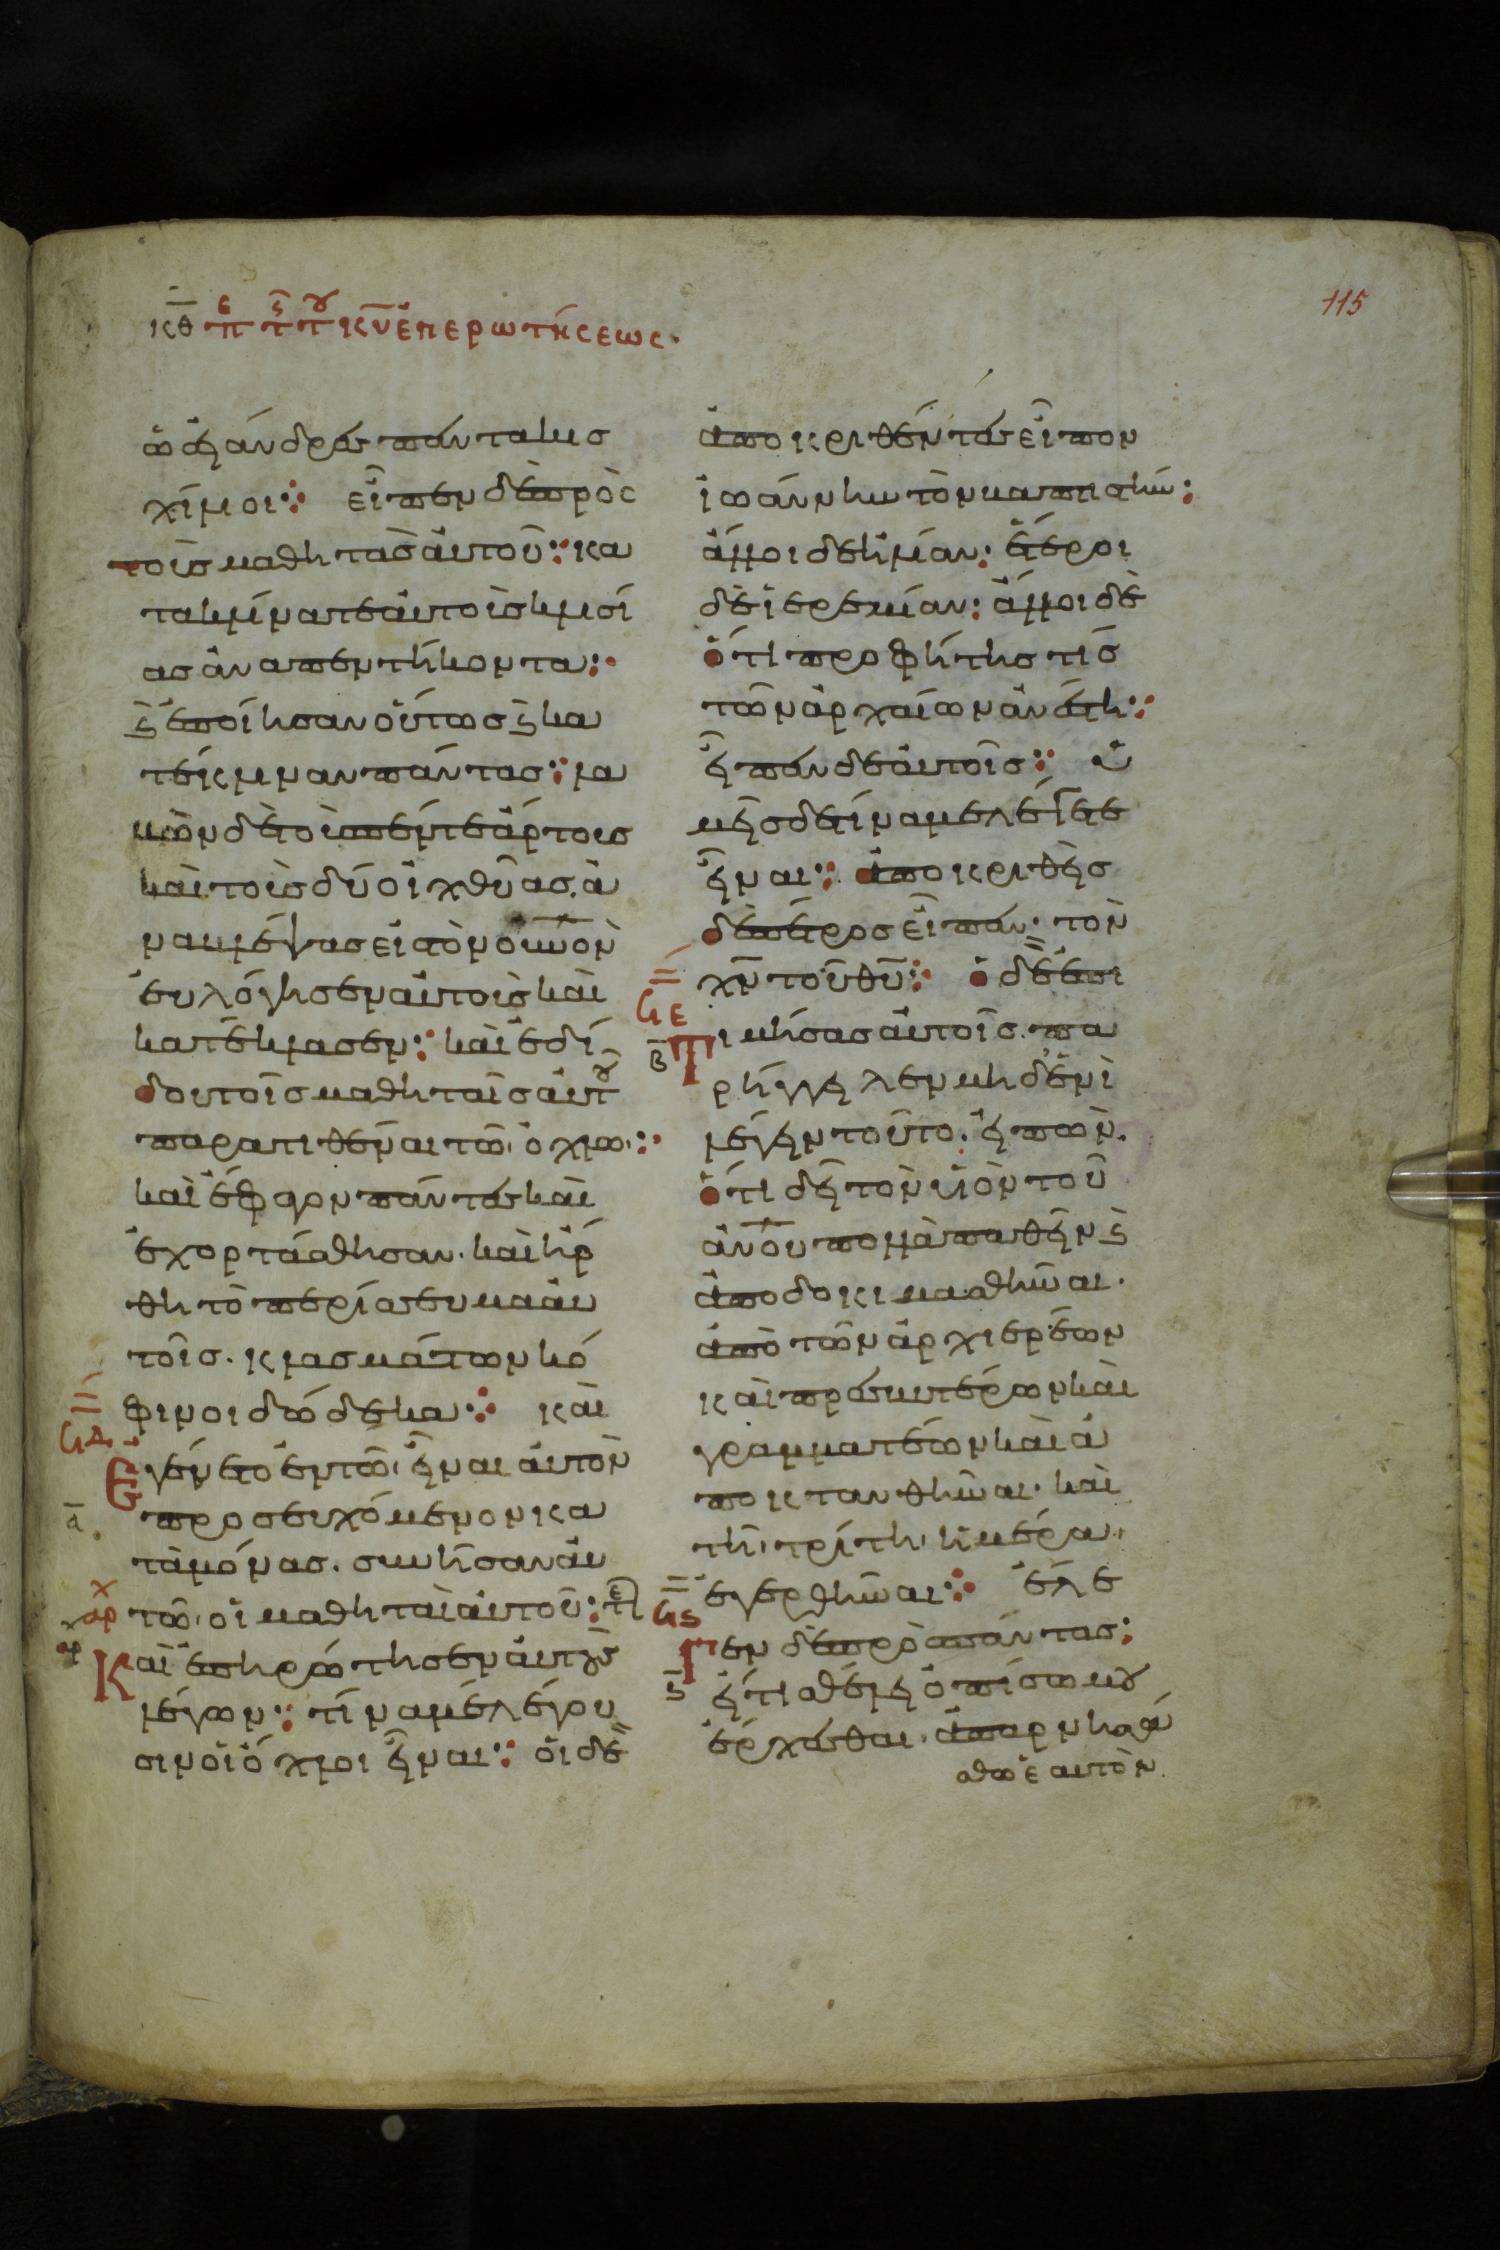 κθ περὶ τῆς τοῦ κυ ἐπερωτήσεως.
115
ὡσεὶ ἄνδρες πεντακισ
χίλιοι: εἶπεν δὲ πρὸς
τοὺς μαθητὰς αὐτοῦ: κα
τακλίνατε αὐτοὺς κλισί
ας ἀνα πεντήκοντα:
ϗ ἐποίησαν οὕτως ϗ κα
τέκλιναν πάντας: λα
βὼν δὲ τοὺς πέντε ἄρτους
καὶ τοὺς δύο ἰχθύας. ἀ
ναβλέψας εἰς τὸν οὐνον
εὐλόγησεν αὐτοὺς καὶ
κατέκλασεν: καὶ ἐδί
δου τοῖς μαθηταῖς αὐτοῦ
παρατιθέναι τῶ ὄχλω:
καὶ ἔφαγον πάντες καὶ
ἐχορτάσθησαν. καὶ ἤρ
θη τὸ περίσσευμα αὐ
τοῖς. κλασμάτων κό
φινοι δώδεκα: καὶ
Ϟδ
ἐγένετο ἐν τῶ εἶναι αὐτὸν
α
προσευχόμενον κα
τὰ μόνας. συνῆσαν αὐ
τῶ οἱ μαθηταὶ αὐτοῦ:
αρχ
Καὶ ἐπηρώτησεν αὐτοὺς
λέγων: τίνα με λέγου
σιν οἱ ὄχλοι εἶναι: οἱ δὲ
ἀποκριθέντες εἶπον
ἰωάννην τὸν βαπτιστήν:
ἄλλοι δὲ ἠλίαν: ἕτεροι
δὲ ἱερεμίαν: ἄλλοι δὲ
ὅτι προφήτης τίς
τῶν ἀρχαίων ἀνέστη:
εἶπεν δὲ αὐτοῖς: ὑ
μεῖς δὲ τίνα με λέγετε
εἶναι: ἀποκριθεὶς
δὲ πέτρος εἶπεν: τὸν
χν τοῦ θυ: ὁ δὲ ἐπι
Ϟε
β
τιμήσας αὐτοῖς. πα
ρήγγειλεν μηδενὶ
λέγειν τοῦτο. εἰπὼν.
ὅτι δεῖ τὸν υἱὸν τοῦ
ἀνου πολλὰ παθεῖν ϗ
ἀποδοκιμασθῆναι.
ἀπὸ τῶν ἀρχιερέων
καὶ πρεσβυτέρων καὶ
γραμματέων καὶ ἀ
ποκτανθῆναι. καὶ
τῆ τρίτη ἡμέρα
ἐγερθῆναι: ἔλε
Ϟς
γεν δὲ πρὸς πάντας:
εἴ τι θέλει ὀπίσω μου
ἔρχεσθαι. ἀπαρνησά
σθω ἑαυτὸν.